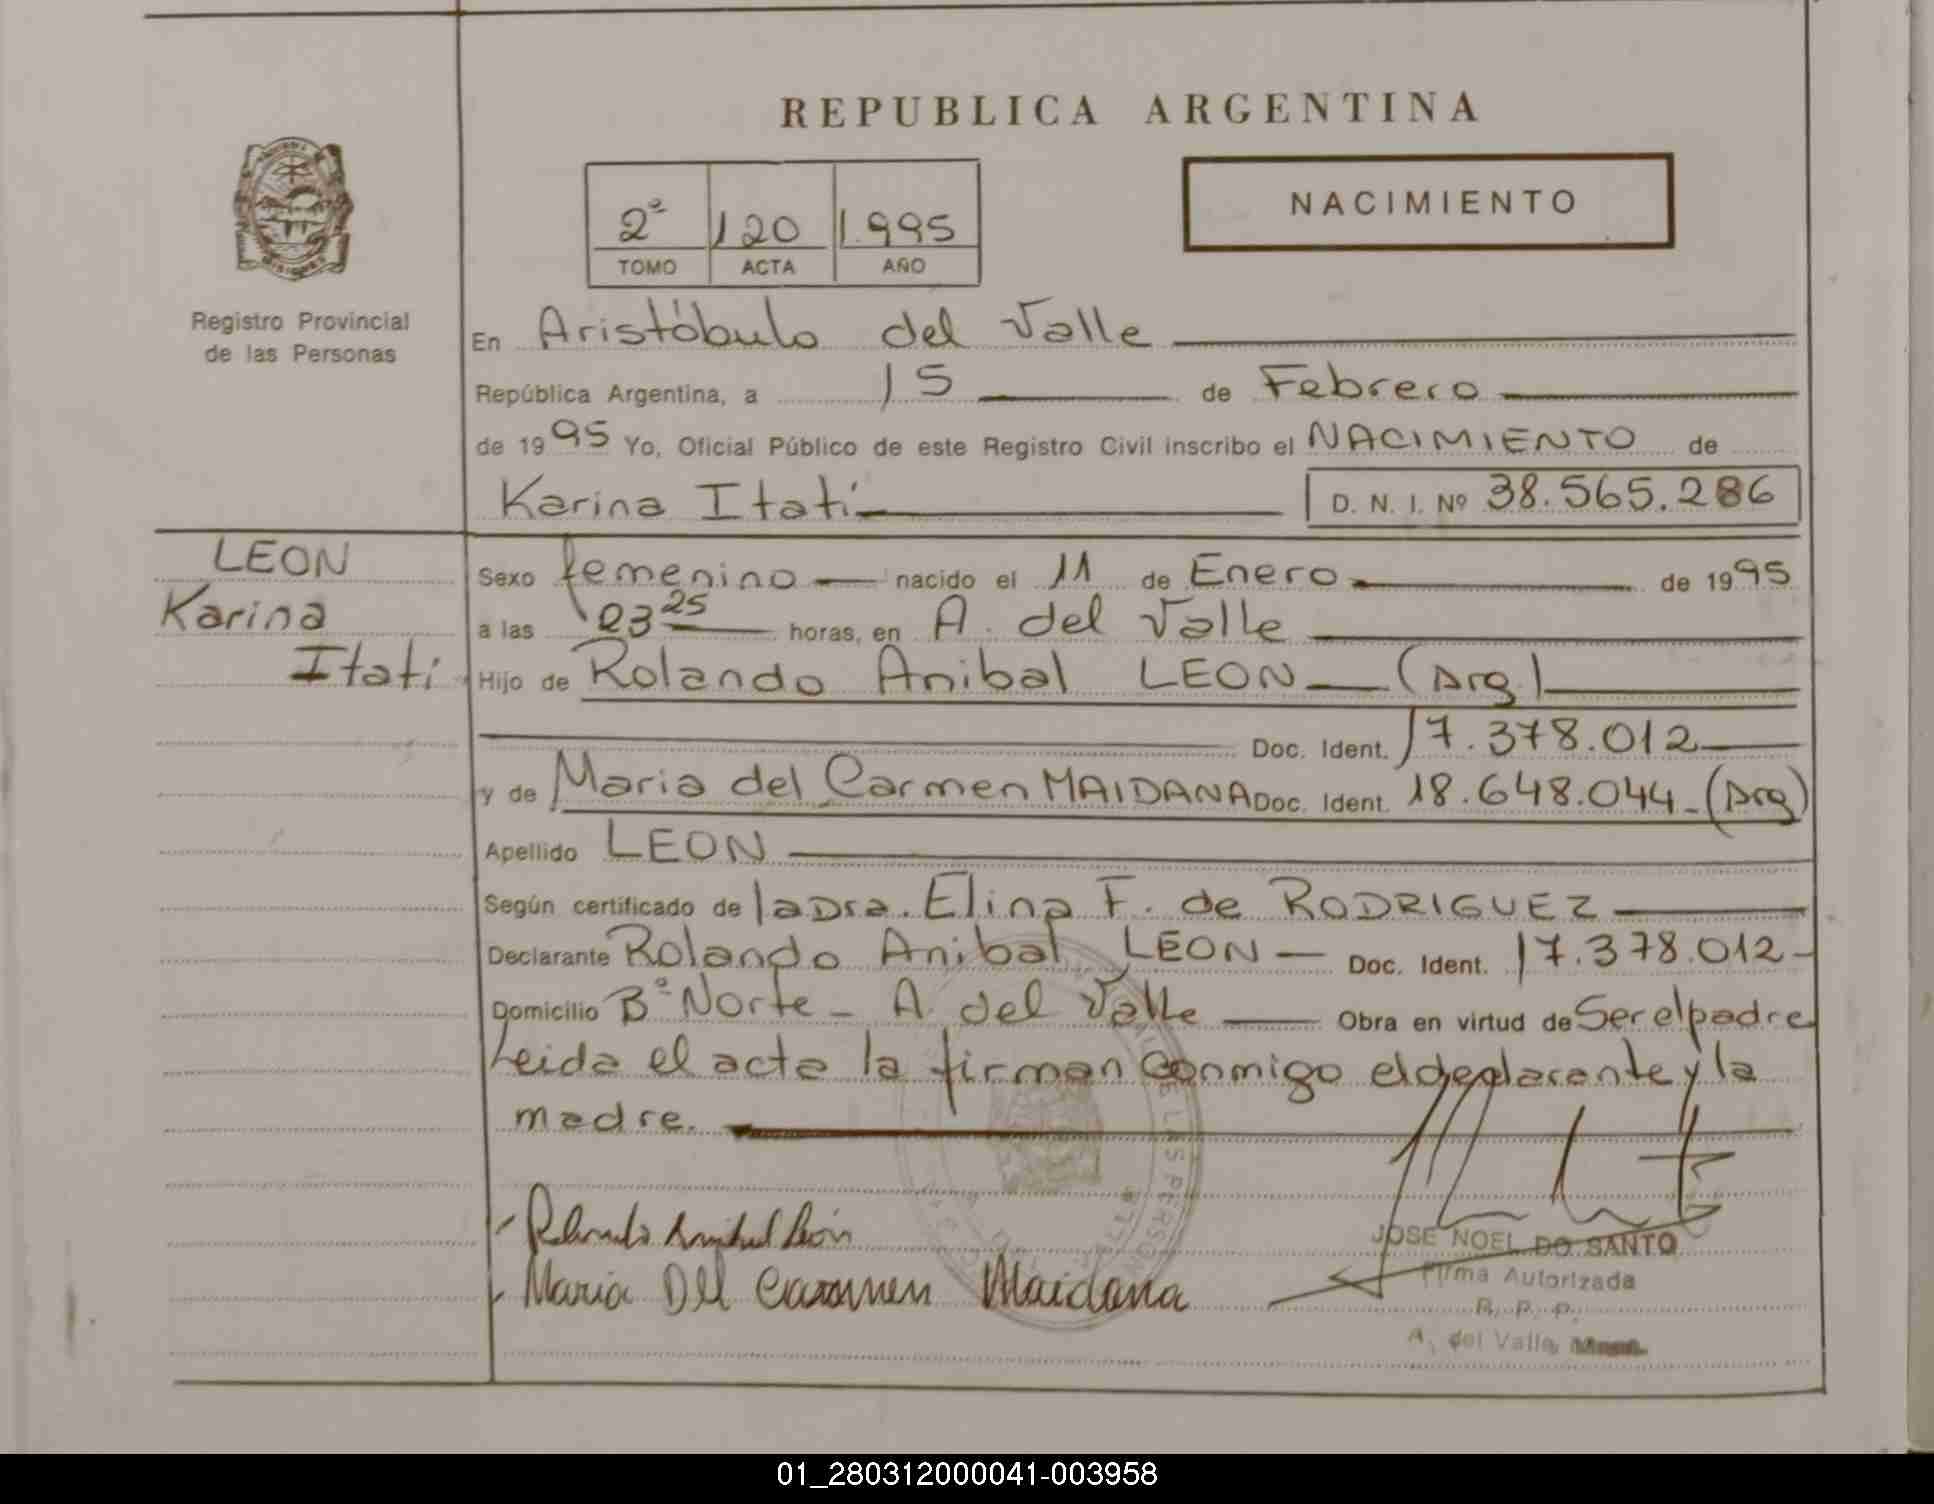 REPUBLICA ARGENTINA
2ª 120 1.995
TOMO ACTA AÑO
NACIMIENTO
Registro Provincial
de las Personas
En Aristóbulo del Valle
República Argentina, a 15 de Febrero
de 1995 Yo, Oficial Público de este Registro Civil inscribo el NACIMIENTO de
Karina Itatí D. N. I. Nº 38.565.286
LEON
Karina
Itatí
Sexo femenino nacido el 11 de Enero de 1995
a las 03 25 horas, en A. del Valle
Hijo de Rolando Anibal LEON (Arg)
Doc. Ident. 17.378.012
y de Maria del Carmen MAIDANA Doc. Ident. 18.648.044 - (Arg)
Apellido LEON
Según certificado de la Dra. Elina F. de RODRIGUEZ
Declarante Rolando Anibal LEON - Doc. Ident. 17.378.012 -
Domicilio Bº Norte - A. del Valle Obra en virtud de Ser el padre
Leida el acta la firman conmigo el declarante y la
madre.
Rolando Anibal León
Maria Del Carmen Maidana
JOSE NOEL DO SANTO
Firma Autorizada
R. P. P.
A. del Valle
01_280312000041-003958